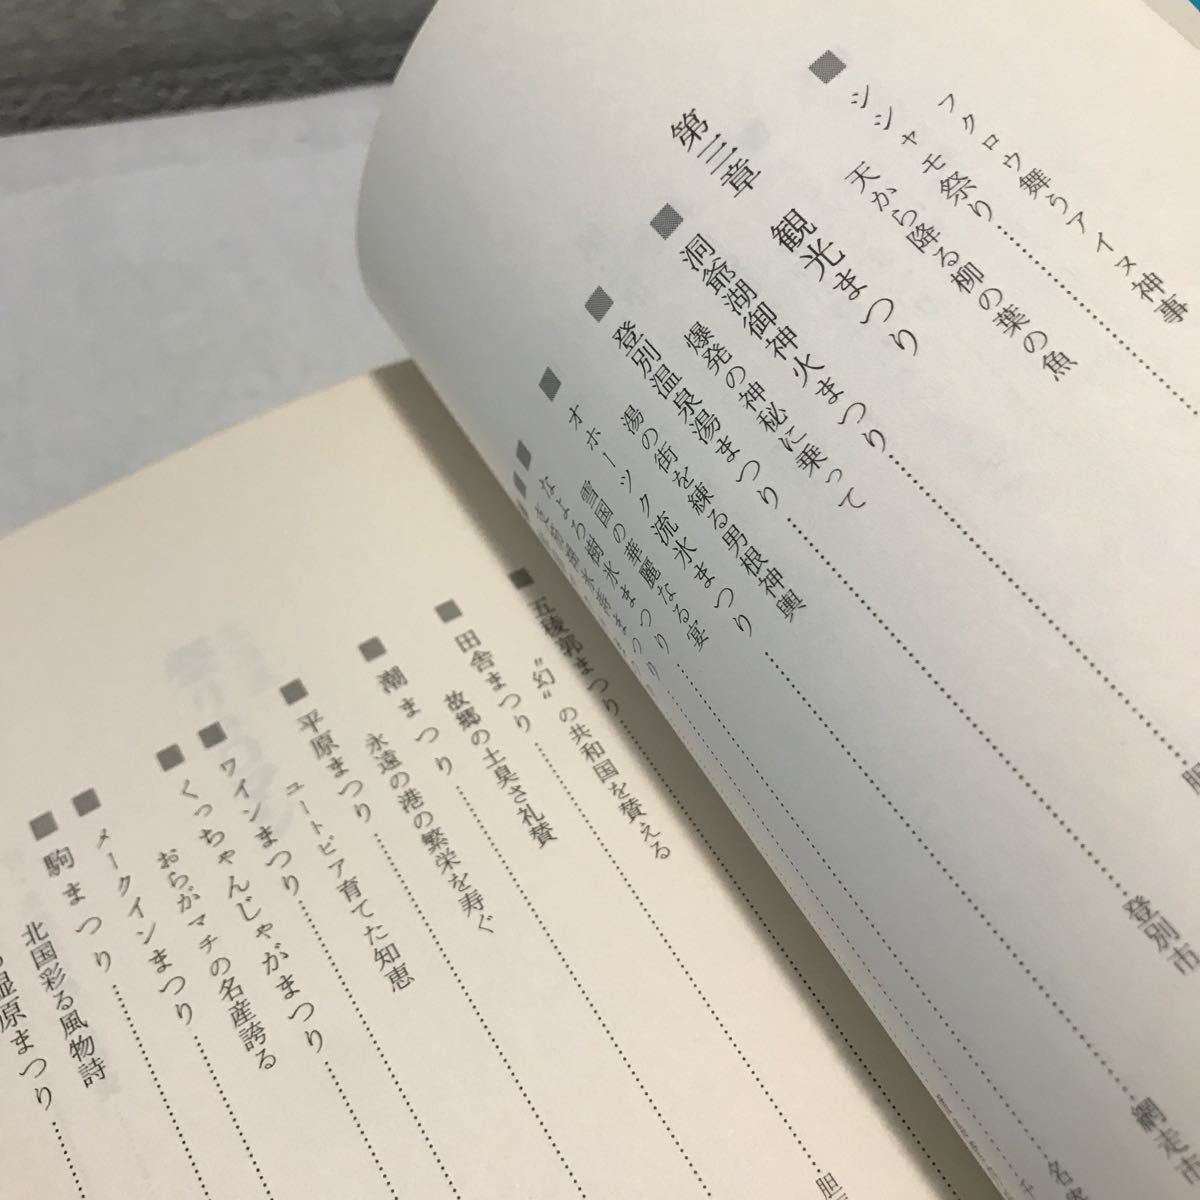 フクロウ舞うアイヌ神事
■シシャモ祭り
天から降る柳の葉の魚
第三章 観光まつり
■洞爺湖御神火まつり
爆発の神秘に乗って
■登別温泉湯まつり 登別市
湯の街を練る男根神輿
■オホーツク流氷まつり 網走市
雪国の華麗なる宴
■なよろ樹氷まつり
■五稜郭まつり
“幻”の共和国を賛える
■田舎まつり
故郷の土臭さ礼賛
■潮まつり
永遠の港の繁栄を寿ぐ
■平原まつり
ユートピア育てた知恵
■ワインまつり
■くっちゃんじゃがまつり
おらがマチの名産誇る
■メークインまつり
■駒まつり
北国彩る風物詩
湿原まつり